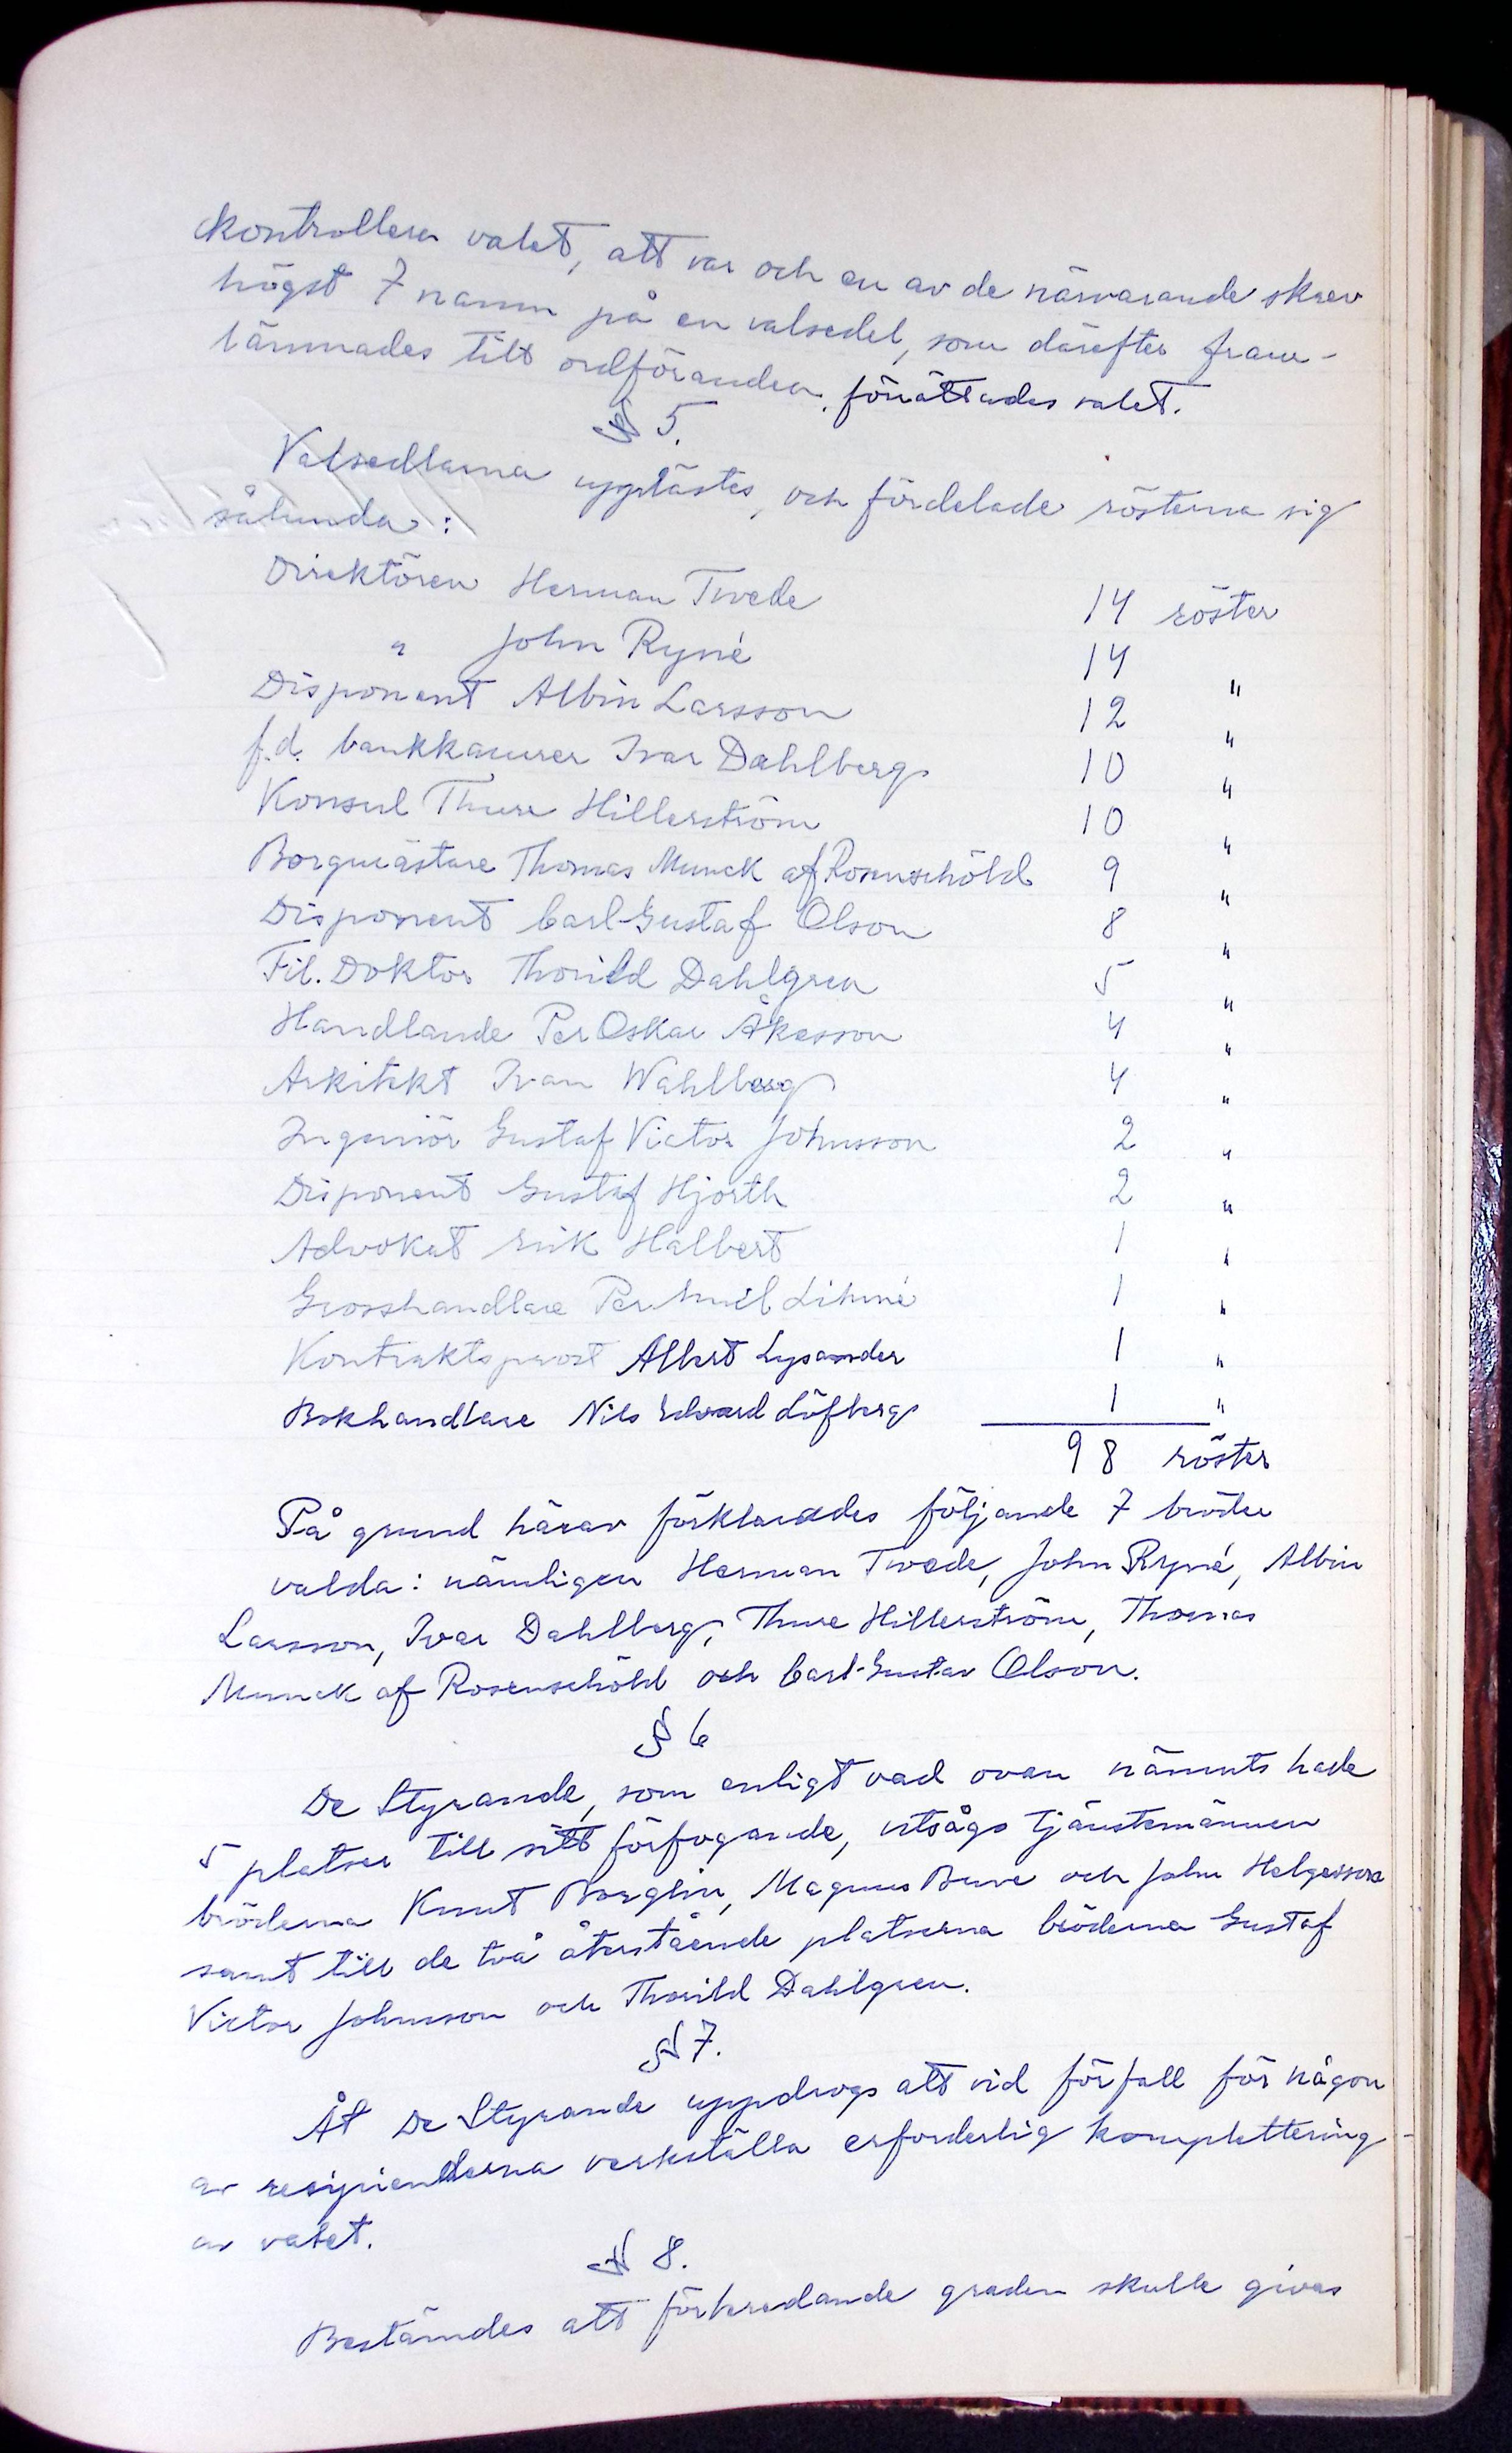 kontrollera valet, att var och en av de närvarande skrev
högst 7 namn på en valsedel, som därefter fram-
lämnades till ordföranden, förrättades valet.
§ 5.
Valsedlarna upplästes, och fördelade rösterna sig
sålunda:
Direktören Herman Twede 14 röster
" John Ryné 14 "
Disponent Albin Larsson 12 "
f.d. bankkamrer Ivar Dahlberg 10 "
Konsul Thure Hillerström 10 "
Borgmästare Thomas Munck af Rosenschöld 9 "
Disponent Carl-Gustaf Olson 8 "
Fil. Doktor Thorild Dahlgren 5 "
Handlande Per Oskar Åkesson 4 "
Arkitekt Ivan Wahlberg 4 "
Ingeniör Gustaf Victor Johnsson 2 "
Disponent Gustaf Hjorth 2 "
Advokat Erik Halbert 1 "
Grosshandlare Per Emil Lihmé 1 "
Kontraktsprost Albert Lysander 1 "
Bokhandlare Nils Edvard Löfberg 1 "
98 röster
På grund härav förklarades följande 7 bröder
valda: nämligen Herman Twede, John Ryné, Albin
Larsson, Ivar Dahlberg, Thure Hillerström, Thomas
Munck af Rosenschöld och Carl-Gustav Olson.
§ 6
De Styrande, som enligt vad ovan nämnts hade
5 platser till sitt förfogande, utsågo tjänstemännen
bröderna Knut Borglin, Magnus Bruve och John Helgesson
samt till de två återstående platserna bröderna Gustaf
Victor Johnsson och Thorild Dahlgren.
§ 7.
Åt De Styrande uppdrogs att vid förfall för någon
av recipienderna verkställa erforderlig komplettering
av valet.
§ 8.
Bestämdes att förberedande graden skulle givas